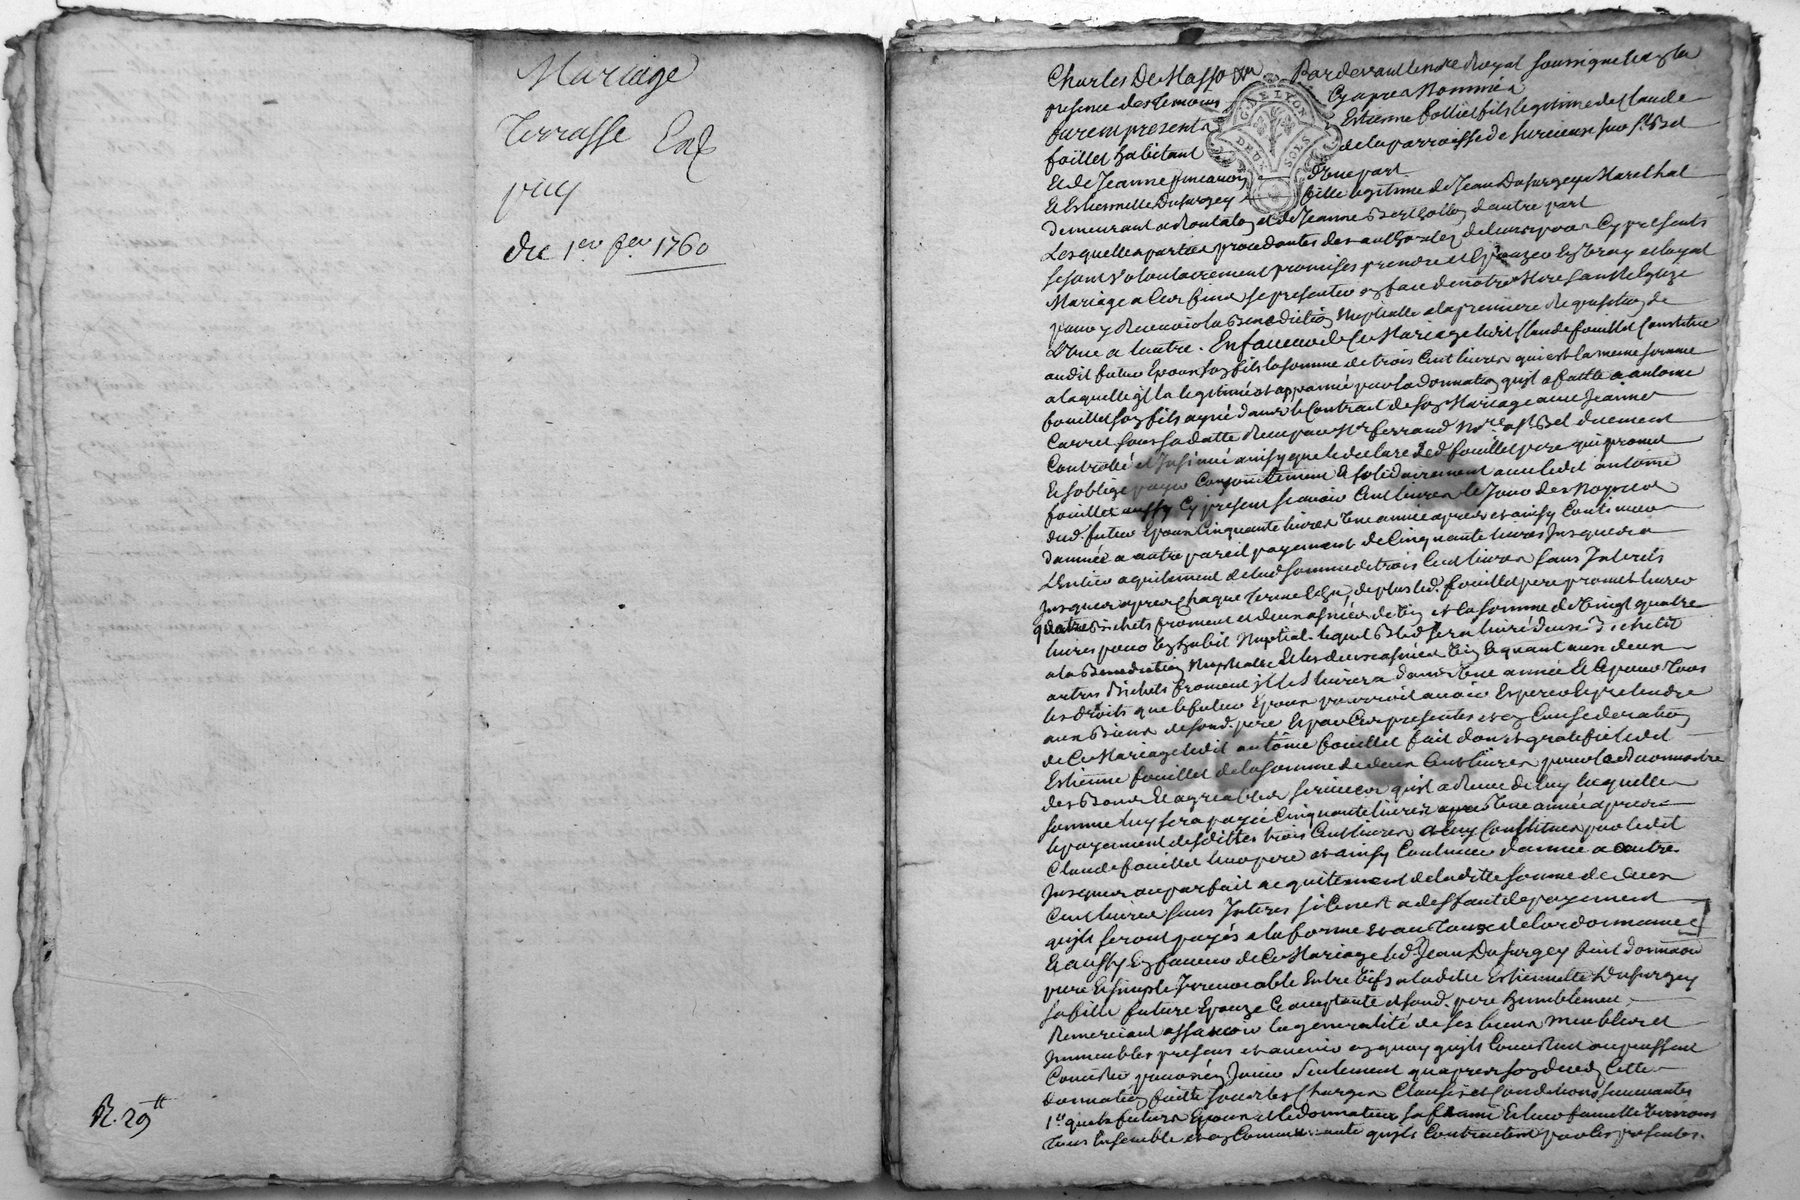 Mariage
Terrasse
puy
du 1er fer 1760
R. 29tt
Charles De Masso Pardevant le nore Royal soussigne et en la
presence des temoins Cy apres Nommés
furent presents Estienne foillet fils legitime de Claude
foillet habitant de la parroisse de surieux
Et de Jeanne d'une part
Et Estiennette Dufurgey fille legitime de Jean Dufurgey Marechal
demeurant a et de Jeanne Bertholley d'autre part
Lesquelles parties procedantes des authorités de leurs peres Cy presents
se sont volontairement promises prendre et Epouzer En vray et loyal
Mariage a leur fins se presenter en face de notre Mere sainte Eglize
pour y Recevoir la Benediction Nuptialle a la premiere Requisition de
L'une a lautre. En faveur de Ce Mariage ledit Claude fouillet Constitue
audit futur Epoux son fils la somme de trois Cent livres qui est la meme somme
a laquelle il la legitimé et appanné par la donnation quil a faitte a antoine
fouillet son fils ayné dans le Contrat de son Mariage avec Jeanne
Carret sous sa datte Recu par Mr ferraud Nore a St duement
Controllé et Insinué ainsy que le declare led. fouillet pere qui promet
Et s'oblige payer Conjointement Et solidairement avec ledit antoine
fouillet aussy Cy present scavoir Cent livres le Jour des Noyces
dud. futur Epoux Cinquante livres Une année apres et ainsy Continuer
d'année a autre pareil payement de Cinquante livres Jusques a
L'Entier aquitement de lad. somme de trois Cent livres sans Interets
Jusques apres Chaque terme Echu, de plus led. fouillet pere promet livrer
quatre Bichets froment et deux asnées de vin et la somme de Vingt quatre
livres pour En habit Nuptial. lequel Bled sera livré deux Bichets
a la Benediction Nuptialle Et les deux asnées vin Et quant aux deux
autres Bichets froment il les livrera dans Une année Et Ce pour tous
les droits que le futur Epoux pourroit avoir Esperer Et pretendre
aux Biens de sond. pere Et par Ces presentes et en Consideration
de Ce Mariage ledit antoine fouillet fait don et gratifie ledit
Estienne fouillet de la somme de deux Cent livres pour la Reconnoitre
des Bons Et agreables services quil a Recu de luy laquelle
somme luy sera payée Cinquante livres apres Une année apres
le payement desdittes trois Cent livres a luy Constituées par ledit
Claude fouillet leur pere et ainsy Continuer d'année a autre
Jusques au parfait aquitement de laditte somme de deux
Cent livres sans Interes si Ce n'est a deffaut de payement
quils seront payés a la forme et au taux de lordonnance
Et aussy En faveur de Ce Mariage led. Jean Dufurgey fait donnaon
pure Et simple Irrevocable Entre vifs a laditte Estiennette Dufurgey
sa fille future Epouze Ce acceptante et sond. pere humblement
Remerciant assavoir la generalité de ses biens meubles et
Immeubles presens et avenir en quoy quils Consistent ou puissent
Consister pour n'en Jouir seulement quapres son deces Cette
donnation faitte sous les Charges Clauses et Conditions suivantes
1nt que les futurs Epoux et le donnateur sa femme Et leur famille vivrons
tous Ensemble et en quils Contractent par Ces presentes.